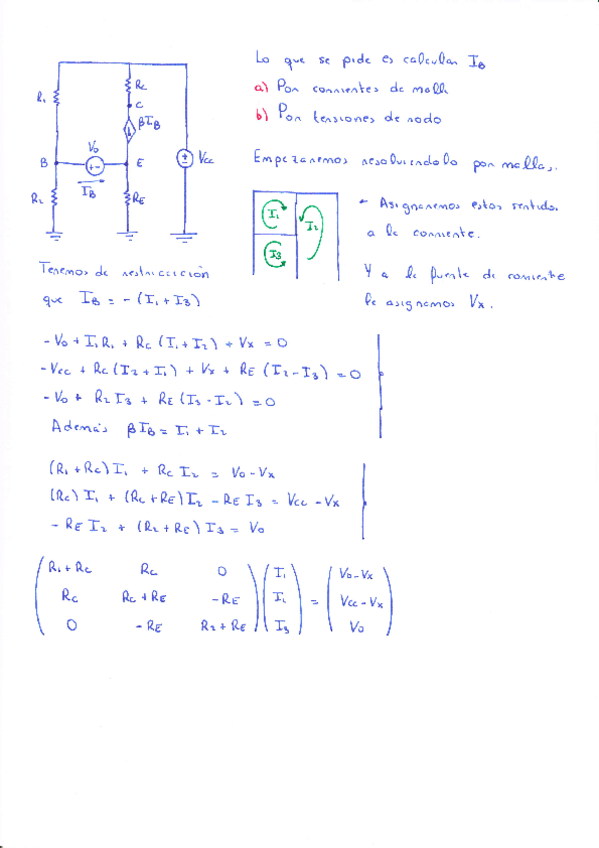 Lo que se pide es calcular IB
a) Por corrientes de malla
b) Por tensiones de nodo
Empezaremos resolviendolo por mallas.
R1
RC
C
βIB
V0
B
+ -
E
VCC
IB
R2
RE
I1
I2
I3
- Asignaremos estos sentidos
a la corriente.
Y a la fuente de corriente
le asignamos Vx.
Tenemos de restricción
que IB = -(I1 + I3)
-V0 + I1R1 + RC (I1+I2) + Vx = 0
-VCC + RC (I2 + I1) + Vx + RE (I2 - I3) = 0
-V0 + R2 I3 + RE (I3 - I2) = 0
Además βIB = I1 + I2
(R1 + RC) I1 + RC I2 = V0 - Vx
(RC) I1 + (RC + RE) I2 - RE I3 = VCC - Vx
- RE I2 + (R2 + RE) I3 = V0
R1 + RC RC 0 I1 V0 - Vx
RC RC + RE -RE I2 = VCC - Vx
0 -RE R2 + RE I3 V0